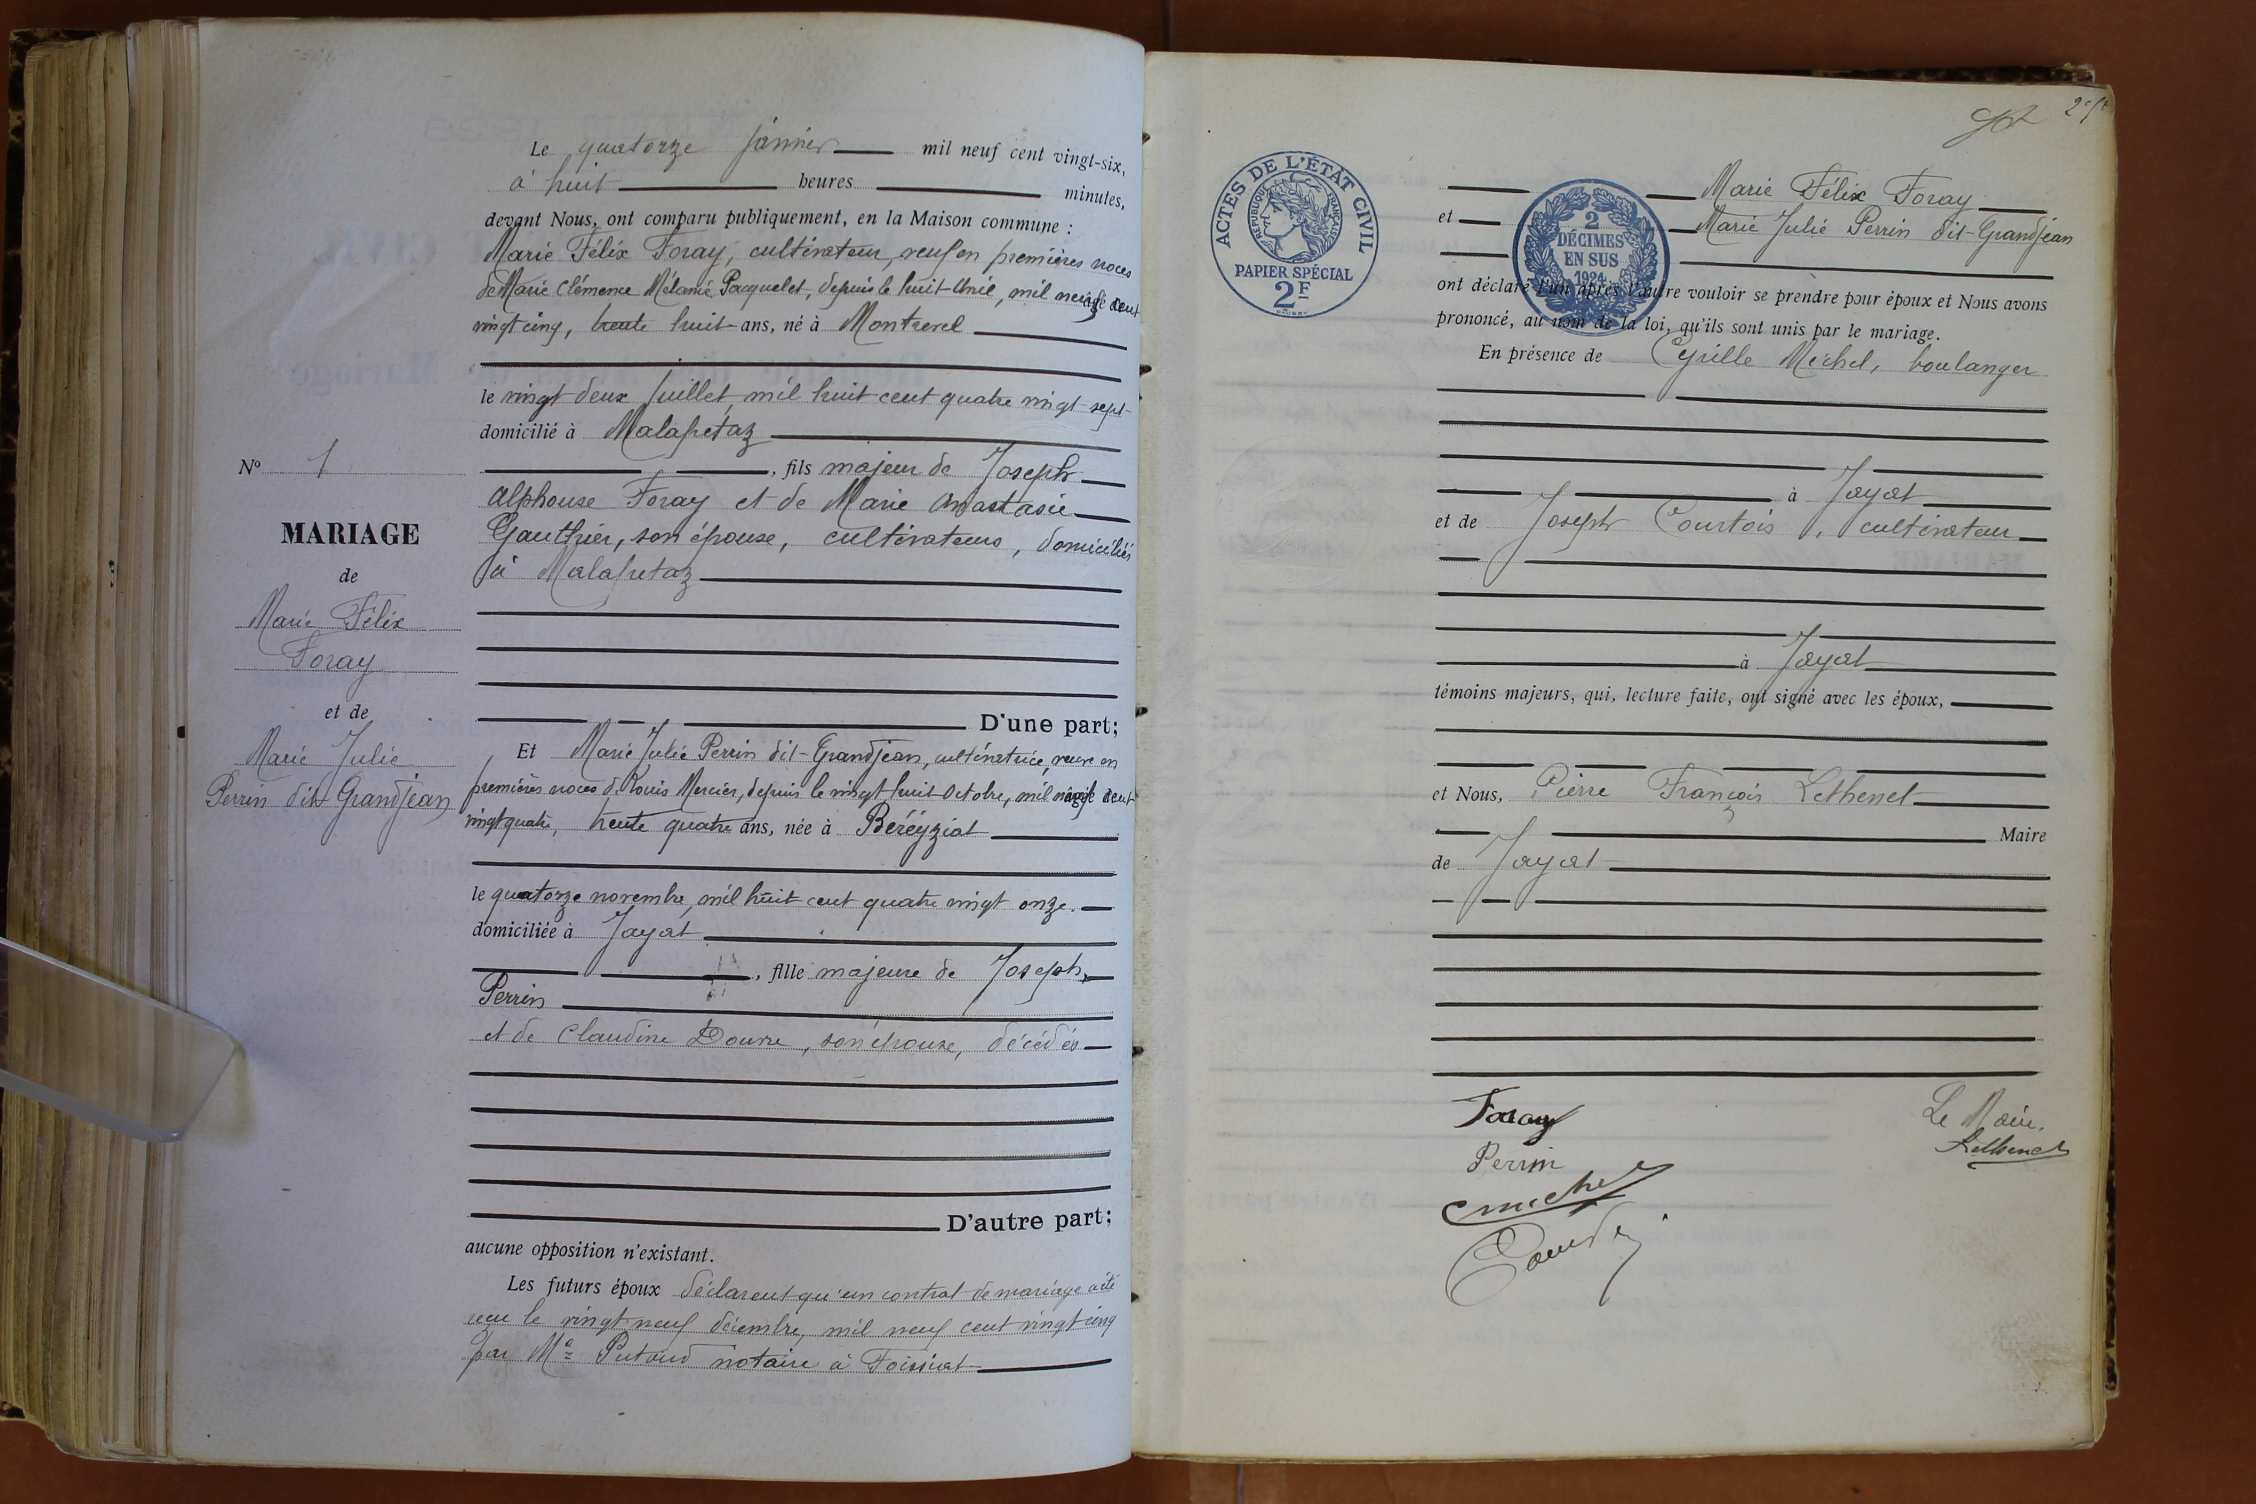 N° 1
MARIAGE
de
Marie Félix
Foray
et de
Marie Julie
Perrin dit Grandjean
Le quatorze janvier mil neuf cent vingt-six,
à huit heures minutes,
devant Nous, ont comparu publiquement, en la Maison commune :
Marie Félix Foray, cultivateur, veuf en premières noces
de Marie Clémence Mélanie Pacquelet, depuis le huit Avril, mil neuf cent
vingt cinq, âgé trente huit ans, né à Montrevel
le vingt deux Juillet, mil huit cent quatre vingt sept
domicilié à Malafretaz
, fils majeur de Joseph
Alphonse Foray et de Marie Anastasie
Gauthier, son épouse, cultivateurs, domiciliés
à Malafretaz
D'une part;
Et Marie Julie Perrin dit-Grandjean, cultivatrice, veuve en
premières noces de Louis Mercier, depuis le vingt huit Octobre, mil neuf cent
vingt quatre, âgée trente quatre ans, née à Béréyziat
le quatorze novembre, mil huit cent quatre vingt onze.
domiciliée à Jayat
, fille majeure de Joseph
Perrin
et de Claudine Douvre, son épouse, décédés
D'autre part;
aucune opposition n'existant.
Les futurs époux déclarent qu'un contrat de mariage a été
reçu le vingt neuf décembre, mil neuf cent vingt cinq
par Me Putoud notaire à Foissiat
ACTES DE L'ÉTAT CIVIL
RÉPUBLIQUE FRANÇAISE
PAPIER SPÉCIAL
2F
2
DÉCIMES
EN SUS
1924
Marie Félix Foray
et Marie Julie Perrin dit-Grandjean
ont déclaré l'un après l'autre vouloir se prendre pour époux et Nous avons
prononcé, au nom de la loi, qu'ils sont unis par le mariage.
En présence de Cyrille Michel, boulanger
à Jayat
et de Joseph Courtois, cultivateur
à Jayat
témoins majeurs, qui, lecture faite, ont signé avec les époux,
et Nous, Pierre François Lethenet
Maire
de Jayat
Foray
Perrin
Le Maire,
Lethenet
C michel